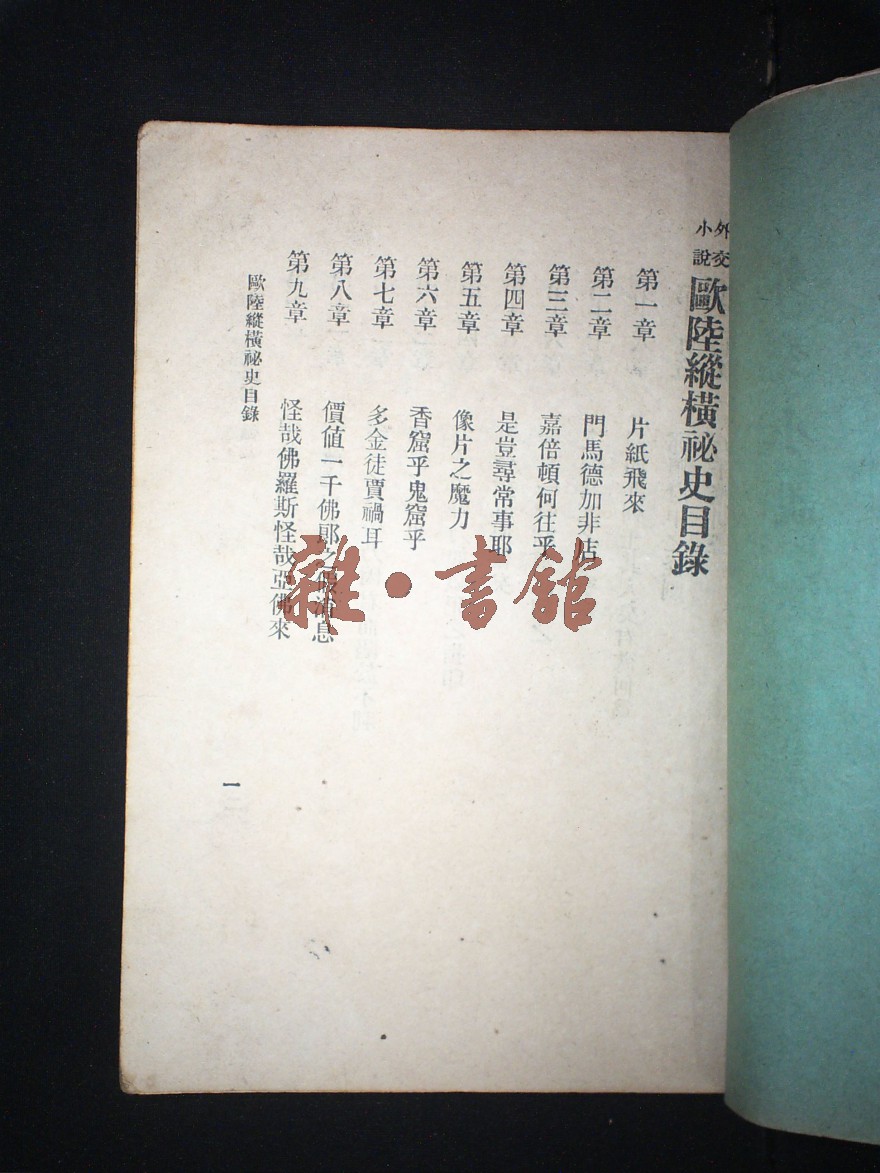 外交小說
歐陸縱橫祕史目錄
第一章 片紙飛來
第二章 門馬德加非店
第三章 嘉倍頓何往乎
第四章 是豈尋常事耶
第五章 像片之魔力
第六章 香窟乎鬼窟乎
第七章 多金徒賈禍耳
第八章 價値一千佛郎之假消息
第九章 怪哉佛羅斯怪哉亞佛來
歐陸縱橫祕史目錄
一
雜·書館